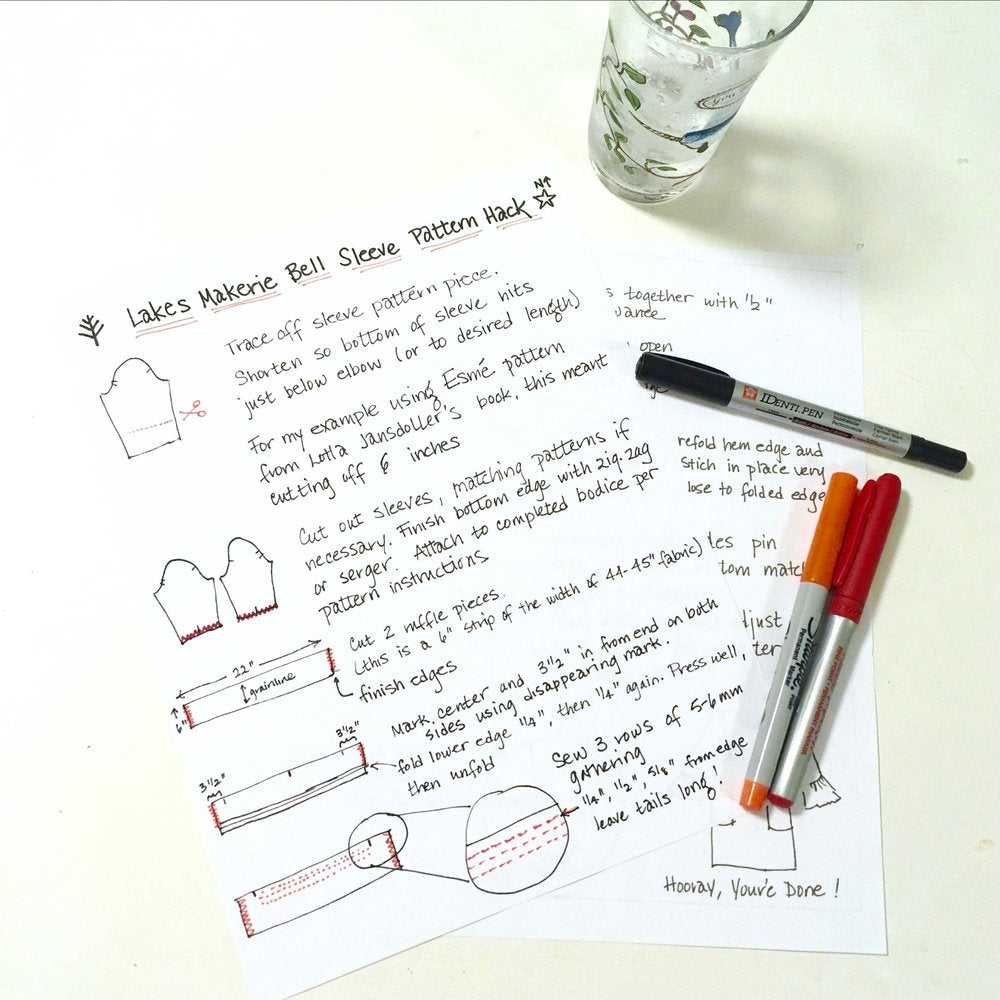 Lakes Makerie Bell Sleeve Pattern Hack
N↑
Trace off sleeve pattern piece.
Shorten so bottom of sleeve hits
just below elbow (or to desired length)
For my example using Esmé pattern
from Lotta Jansdoller's book, this meant
cutting off 6 inches
Cut out sleeves, matching patterns if
necessary. Finish bottom edge with zig-zag
or serger. Attach to completed bodice per
pattern instructions
Cut 2 ruffle pieces.
(this is a 6" strip of the width of 44-45" fabric)
finish edges
22"
grainline
6"
Mark center and 3 1/2" in from end on both
sides using disappearing mark.
fold lower edge 1/4", then 1/4" again. Press well,
then unfold
3 1/2"
3 1/2"
Sew 3 rows of 5-6mm
gathering
1/4", 1/2", 5/8" from edge
leave tails long!
s together with 1/2"
open
refold hem edge and
stich in place very
lose to folded edge
les pin
tom matc
djust
ter
Hooray, Your'e Done !
IDENTI.PEN
Sharpie
you